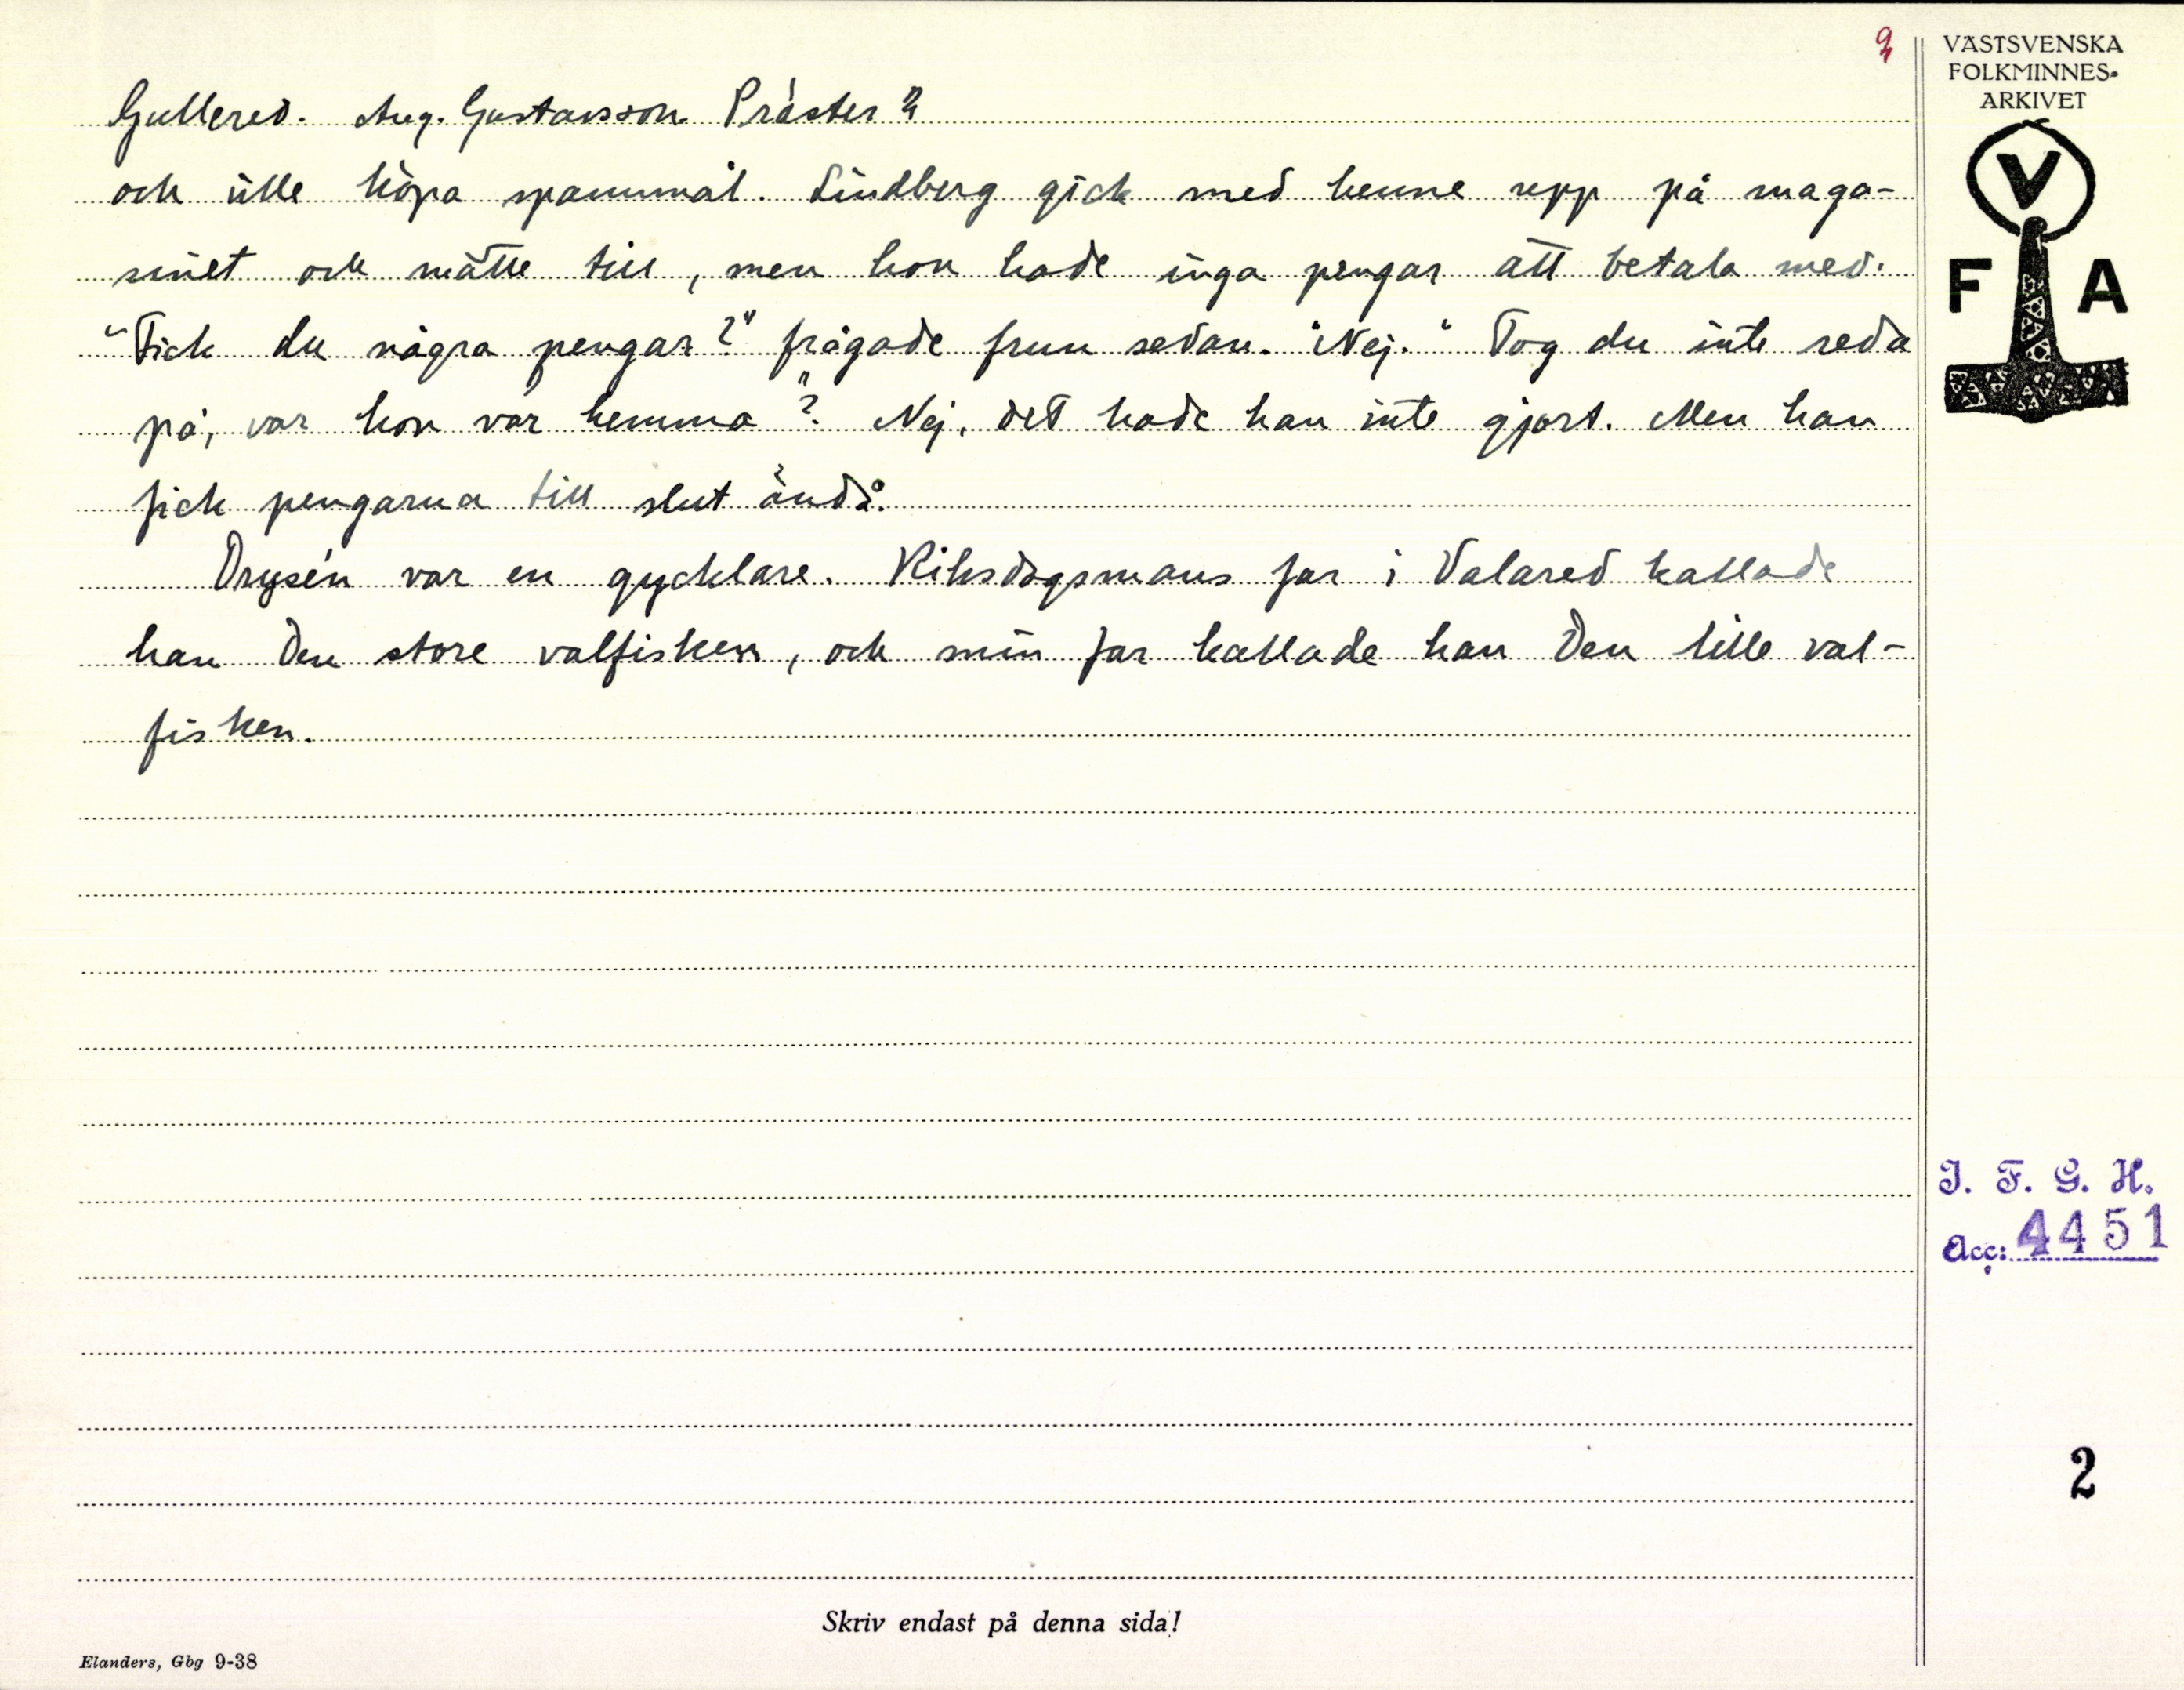 2
VÄSTSVENSKA
FOLKMINNES-
ARKIVET
V
F A
Gullered. Aug. Gustavsson. Präster 2
och ville köpa spannmål. Lindberg gick med henne upp på maga-
sinet och mätte till, men hon hade inga pengar att betala med.
"Fick du några pengar?" frågade frun sedan. "Nej." Tog du inte reda
på, var hon var hemma?" Nej, det hade han inte gjort. Men han
fick pengarna till slut ändå.
Drysén var en gycklare. Riksdagsmans far i Valared kallade
han Den store valfisken, och min far kallade han Den lille val-
fisken.
I. F. G. H.
Acc: 4451
2
Skriv endast på denna sida!
Elanders, Gbg 9-38